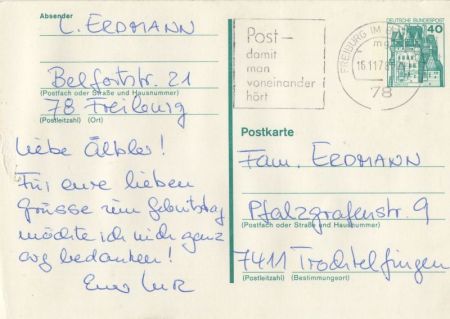 Absender
C. ERDMANN
Belfortstr. 21
(Postfach oder Straße und Hausnummer)
78 Freiburg
(Postleitzahl) (Ort)
Liebe Älbler!
Für eure lieben
Grüsse zum Geburtstag
möchte ich mich ganz
arg bedanken!
Euer
Post-
damit
man
voneinander
hört
FREIBURG IM
78
DEUTSCHE BUNDESPOST
40
Postkarte
Fam. ERDMANN
Pfalzgrafenstr. 9
(Postfach oder Straße und Hausnummer)
7411 Trochtelfingen
(Postleitzahl) (Bestimmungsort)